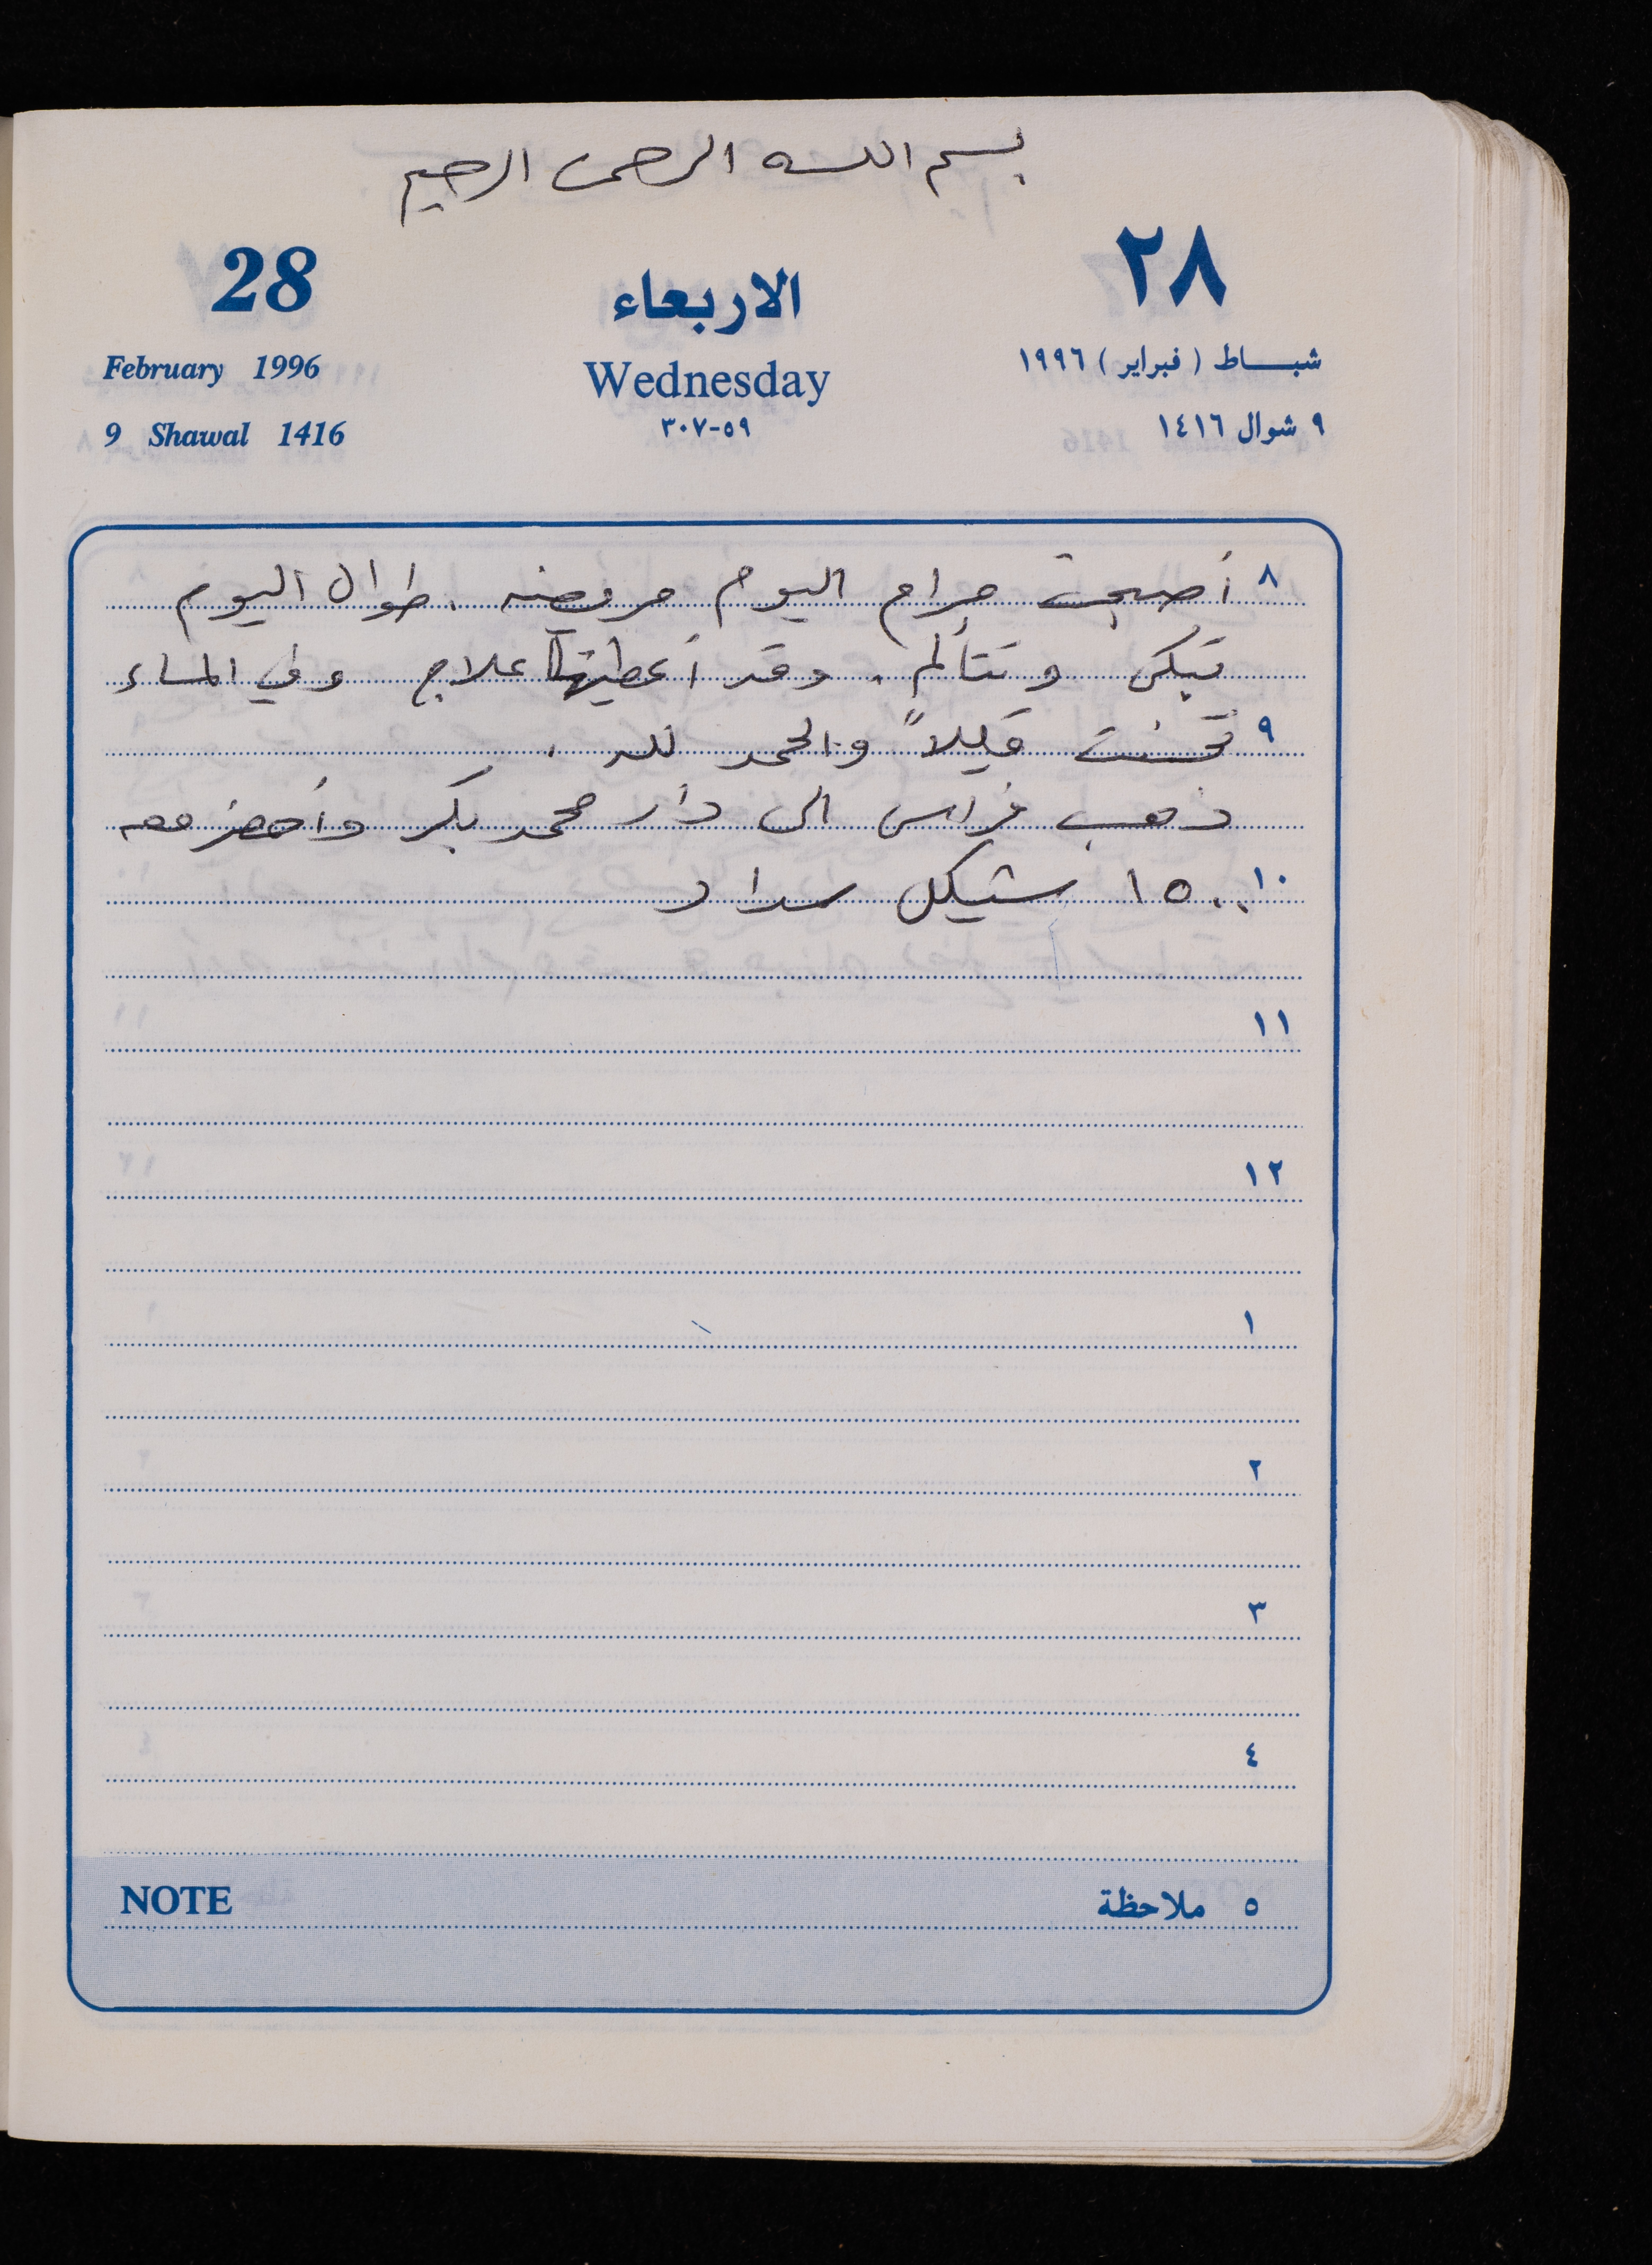 بسم الله الرحمن الرحيم
28 الاربعاء ٢٨
February 1996 Wednesday شباط (فبراير) ١٩٩٦
9 Shawal 1416 ٥٩-٣٠٧ ٩ شوال ١٤١٦
٨ أصبحت مرام اليوم مريضه. طوال اليوم
تبكي وتتألم. وقد أعطيتها علاج وفي المساء
٩ تحسنت قليلاً والحمد لله.
ذهب فراس الى دار محمد بكر وأحضر معه
١٠ ١٥٠٠ شيكل سداد
١١
١٢
١
٢
٣
٤
NOTE ٥ ملاحظة